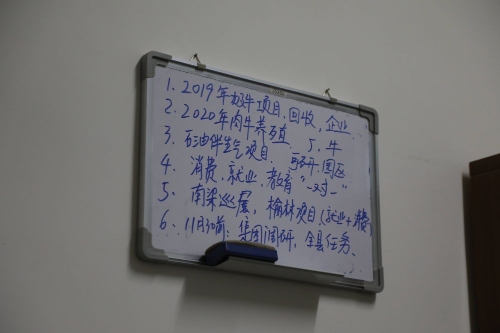 1. 2019年奶牛项目.回收,企业
2. 2020年肉牛养殖 5.牛
3. 石油伴生气项目. 可研.园区
4. 消费.就业.教育"一对一"
5. 南梁巡展,榆林项目(就业+消费)
6. 11月30前:集团调研,全县任务.